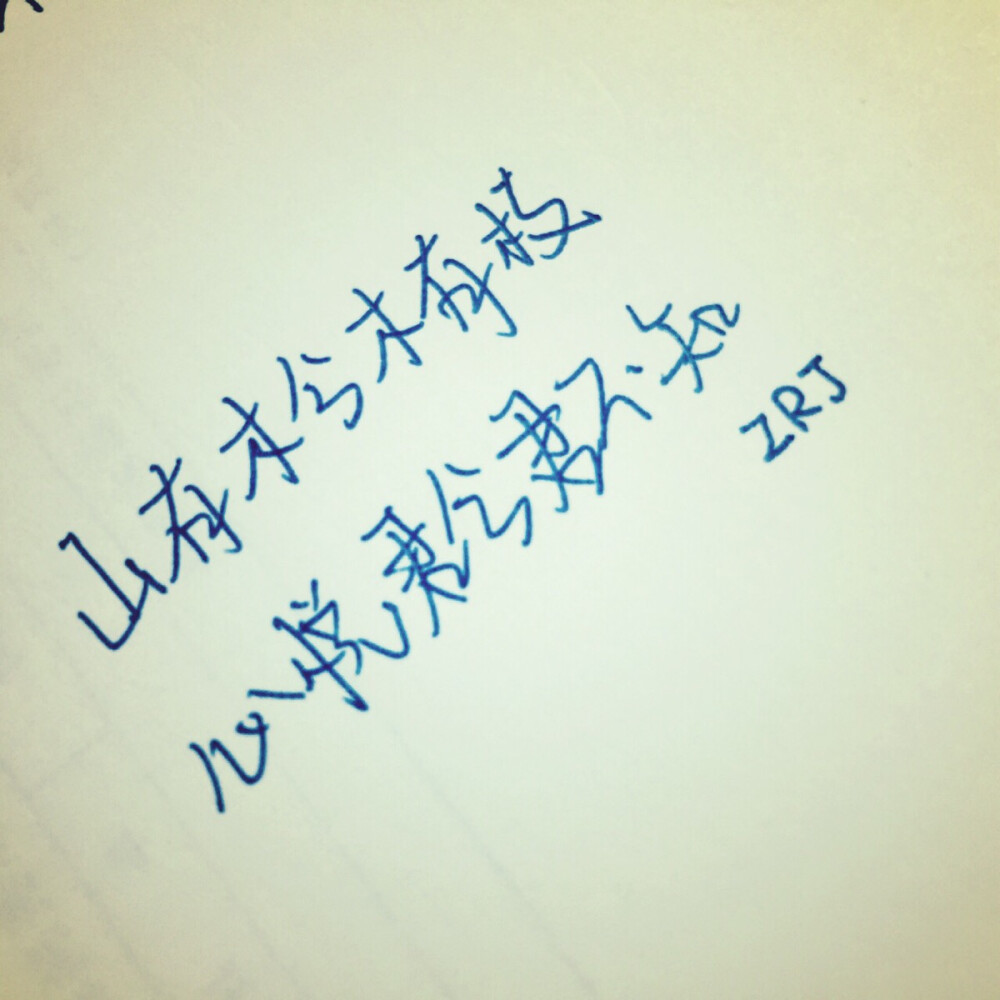 山有木兮木有枝
心悦君兮君不知
ZRJ